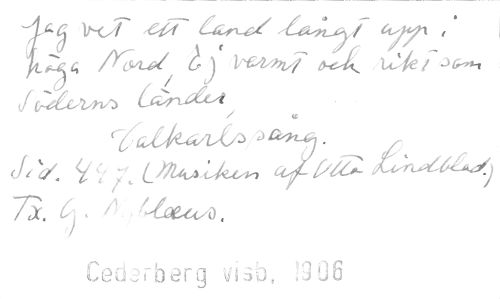 Jag vet ett land långt upp i
höga Nord, Ej varmt och rikt som
Söderns länder,
Valkarlssång.
Sid. 447. (Musiken af Otto Lindblad.)
Tx. G. Nyblæus.
Cederberg visb, 1906